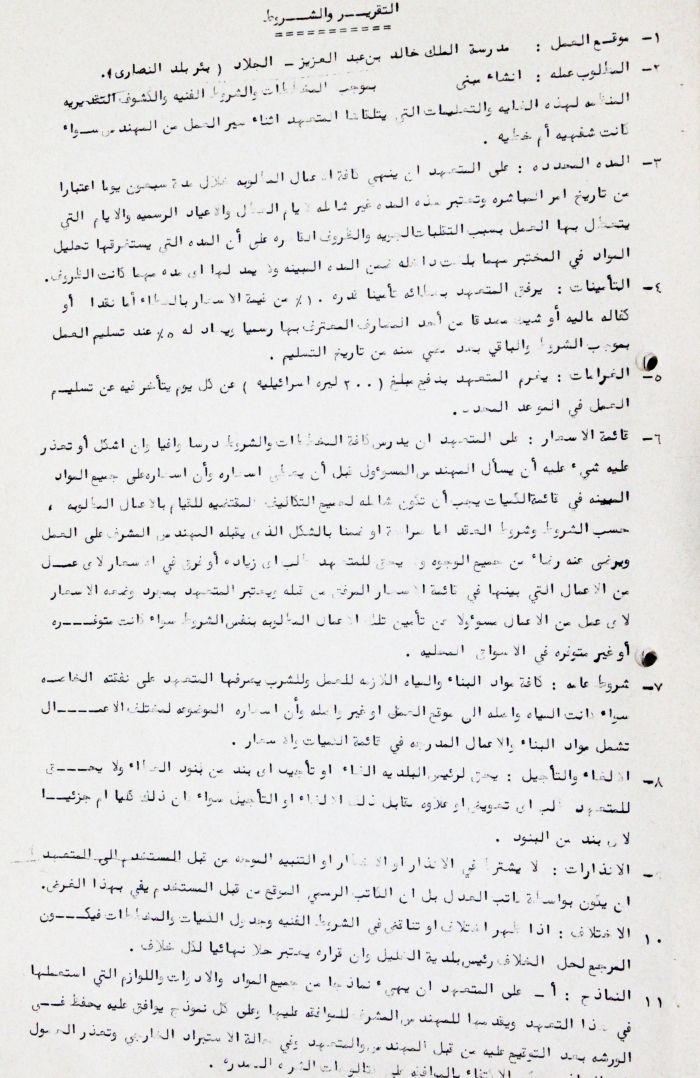 التقريــر والشــروط
١- موقع العمل : مدرسة الملك خالد بن عبد العزيز - الجلاد ( بئر بلد النصارى ) .
٢- المطلوب عمله : انشاء مبنى بموجب المخططات والشروط الفنيه والكشوف التقديريه
المنظمه لهذه الغايه والتعليمات التي يتلقاها المتعهد اثناء سير العمل من المهندس ســواء
كانت شفهيه أم خطيه .
٣- المده المحدده : على المتعهد ان ينهي كافة الاعمال المطلوبه خلال مدة سبعون يوما اعتبارا
من تاريخ امر المباشره وتعتبر هذه المده غير شامله لايام العطل والاعياد الرسميه والايام التي
يتعطل بها العمل بسبب التقلبات الجويه والظروف القاهره على أن المده التي يستغرقها تحليل
المواد في المختبر مهما بلغت داخله ضمن المده المبينه ولا يمد لها اى مده مهما كانت الظروف.
٤- التأمينات : يرفق المتعهد بعطائه تأمينا قدره ١٠٪ من قيمة الاسعار بالعطاء أما نقدا أو
كفاله ماليه أو شيك مصدقا من أحد المصارف المعترف بها رسميا ويعاد له ٥٪ عند تسليم العمل
بموجب الشروط والباقي بعد مضي سنه من تاريخ التسليم .
٥- الغرامات : يغرم المتعهد بدفع مبلغ ( ٢٠٠ ليره اسرائيليه ) عن كل يوم يتأخر فيه عن تسليــم
العمل في الموعد المحدد .
٦- قائمة الاسعار : على المتعهد ان يدرس كافة المخططات والشروط درسا وافيا وان اشكل أو تعذر
عليه شيء عليه أن يسأل المهندس المسوءول قبل أن يعطي اسعاره وأن اسعاره على جميع المواد
المبينه في قائمة الكميات يجب أن تكون شامله لجميع التكاليف المقتضيه للقيام بالاعمال المطلوبه ،
حسب الشروط وشروط العقد اما صراحة او ضمنا بالشكل الذى يقبله المهندس المشرف على العمل
ويرضى عنه رضاء من جميع الوجوه ولا يحق للمتعهد طلب اى زياده أو فرق في الاسعار لاى عمــل
من الاعمال التي بينها في قائمة الاسعار المرفق من قبله ويعتبر المتعهد بمجرد وضعه الاسعار
لاى عمل من الاعمال مسوءولا عن تأمين تلك الاعمال المطلوبه بنفس الشروط سواء كانت متوفــره
أو غير متوفره في الاسواق المحليه .
٧- شروط عامه : كافة مواد البناء والمياه اللازمه للعمل وللشرب يصرفها المتعهد على نفقته الخاصــه
سواء كانت المياه واصله الى موقع العمل او غير واصله وأن اسعاره الموضوعه لمختلف الاعمــــال
تشمل مواد البناء والاعمال المدرجه في قائمة الكميات والاسعار .
٨- الالغاء والتأجيل : يحق لرئيس البلديه الغاء او تأجيل اى بند من بنود العطاء ولا يحــق
للمتعهد طلب اى تعويض او علاوه مقابل ذلك الالغاء او التأجيل سواء كان ذلك كليا ام جزئيــا
لاى بند من البنود .
٩- الانذارات : لا يشترط في الانذار او الاخطار او التنبيه الموجه من قبل المستخدم الى المتعهد
ان يكون بواسطة كاتب العدل بل ان الكاتب الرسمي الموقع من قبل المستخدم يفي بهذا الغرض.
١٠ الاختلاف : اذا ظهر اختلاف او تناقض في الشروط الفنيه وجدول الكميات والمخططات فيكــون
المرجع لحل الخلاف رئيس بلدية الخليل وان قراره يعتبر حلا نهائيا لكل خلاف .
١١ النماذج : أ- على المتعهد ان يهيء نماذجا من جميع المواد والادوات واللوازم التي استعملها
في هذا التعهد ويقدمها للمهندس المشرف للموافقه عليها وعلى كل نموذج يوافق عليه يحفظ فــي
الورشه بعد التوقيع عليه من قبل المهندس والمتعهد وفي حالة الاستيراد الخارجي وتعذر الحصول
الاكتفاء بالموافقه على كتالوجات الشركه المصدره .